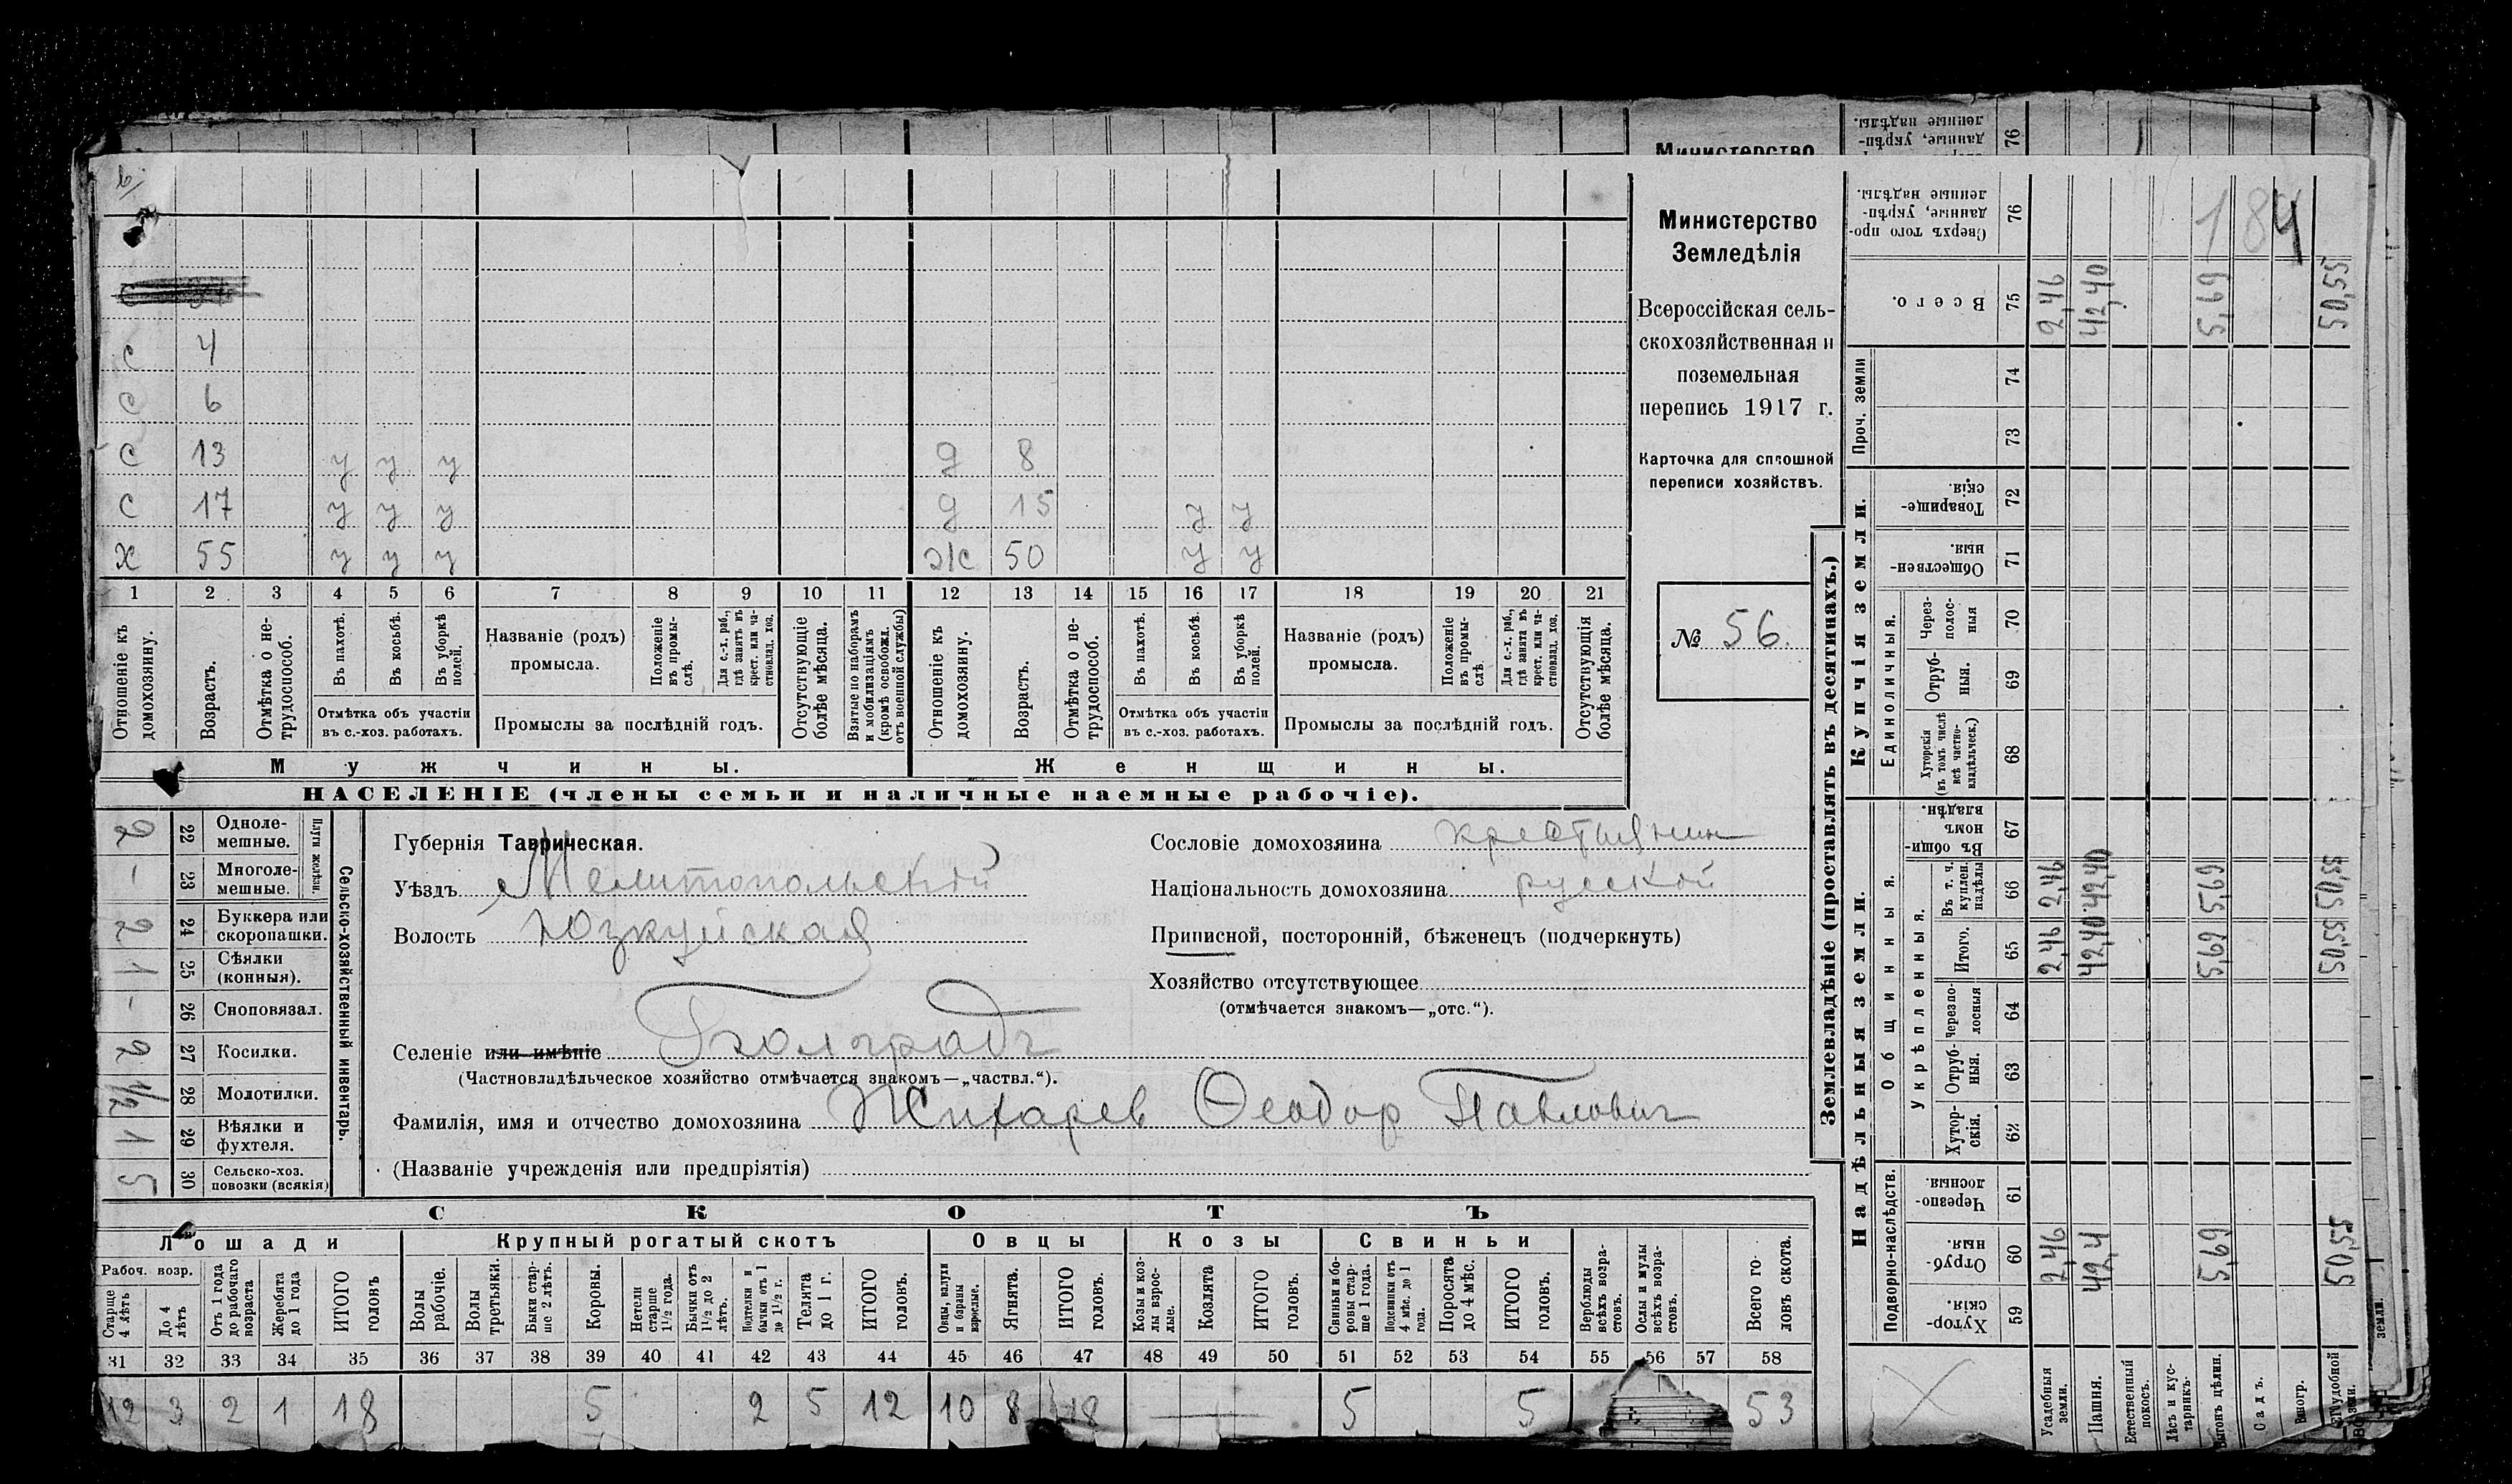 в/
Министерство
76
С 4
С 6
С 13 у у у д 8
С 17 у у у д 15 у у
Х 55 у у у ж 50 у у
1 2 3 4 5 6 7 8 9 10 11 12 13 14 15 16 17 18 19 20 21
Отношеніе къ домохозяину.
Возрастъ.
Отмѣтка о не-трудоспособ.
Въ пахотѣ.
Въ косьбѣ.
Въ уборкѣ полей.
Отмѣтка объ участіи
въ с.-хоз. работахъ.
Названіе (родъ)
промысла.
Положеніе въ промы-слѣ.
Для с.-х. раб., гдѣ занятъ въ крест. или ча-стновлад. хоз.
Промыслы за послѣдній годъ.
Отсутствующіе болѣе мѣсяца.
Взятые по наборамъ и мобилизаціямъ (кромѣ освобожд. отъ военной службы)
Отношеніе къ домохозяину.
Возрастъ.
Отмѣтка о не-трудоспособ.
Въ пахотѣ.
Въ косьбѣ.
Въ уборкѣ полей.
Отмѣтка объ участіи
въ с.-хоз. работахъ.
Названіе (родъ)
промысла.
Положеніе въ промы-слѣ.
Для с.-х. раб., гдѣ занята въ крест. или ча-стновлад. хоз.
Промыслы за послѣдній годъ.
Отсутствующія болѣе мѣсяца.
Мужчины.
Женщины.
НАСЕЛЕНІЕ (члены семьи и наличные наемные рабочіе).
Министерство
Земледѣлія
Всероссійская сель-
скохозяйственная и
поземельная
перепись 1917 г.
Карточка для сплошной
переписи хозяйствъ.
№ 56.
Сельско-хозяйственный инвентарь.
Плуги желѣзн.
2 22 Одноле-мешные.
– 23 Многоле-мешные.
2 24 Буккера или скоропашки.
1 25 Сѣялки (конныя).
– 26 Сноповязал.
2 27 Косилки.
1/2 28 Молотилки.
1 29 Вѣялки и фухтеля.
5 30 Сельско-хоз. повозки (всякія)
Губернія Таврическая.
Уѣздъ Мелитопольскій
Волость Юзкуйская
Селеніе или имѣніе
(Частновладѣльческое хозяйство отмѣчается знакомъ—„частвл.“).
Фамилія, имя и отчество домохозяина Жихарев Ѳеодор Павлович
(Названіе учрежденія или предпріятія)
Сословіе домохозяина крестьянин
Національность домохозяина русскій
Приписной, посторонній, бѣженецъ (подчеркнуть)
Хозяйство отсутствующее
(отмѣчается знакомъ—„отс.“).
СКОТЪ
Лошади
Крупный рогатый скотъ
Овцы
Козы
Свиньи
Рабоч. возр.
Старше 4 лѣтъ
До 4 лѣтъ
Отъ 1 года до рабочаго возраста
Жеребята до 1 года
ИТОГО головъ
Волы рабочіе.
Волы третьяки.
Быки стар-ше 2 лѣтъ.
Коровы.
Нетели старше 1½ года.
Бычки отъ 1½ до 2 лѣтъ.
Подтелки и бычки отъ 1 до 1½ г.
Телята до 1 г.
ИТОГО головъ.
Овцы, валухи и бараны взрослые.
Ягнята.
ИТОГО головъ.
Козы и коз-лы взрос-лые.
Козлята
ИТОГО головъ.
Свиньи и бо-ровы стар-ше 1 года.
Подсвинки отъ 4 мѣс. до 1 года.
Поросята до 4 мѣс.
ИТОГО головъ.
Верблюды всѣхъ возра-стовъ.
Ослы и мулы всѣхъ возра-стовъ.
Всего го-ловъ скота.
31 32 33 34 35 36 37 38 39 40 41 42 43 44 45 46 47 48 49 50 51 52 53 54 55 56 57 58
12 3 2 1 18 5 2 5 12 10 8 18 — 5 5 53
Землевладѣніе (проставлять въ десятинахъ.)
Надѣльныя земли.
Купчія земли.
Проч. земли
Подворно-наслѣдств.
Общинныя.
Укрѣпленныя.
Единоличныя.
184
Сверхъ того про-данные, укрѣп-ленные надѣлы. 76
Всего. 75 2,46 42,40 5,69 50,55
74
73
Товарище-скія. 72
Обществен-ныя. 71
Через-полос-ныя 70
Отруб-ныя. 69
Хуторскія (въ томъ числѣ всѣ частно-владѣльческ.) 68
Въ общи-номъ владѣн. 67
Въ т. ч. куплен. надѣлы 66 2,46 42,40 5,69 50,55
Итого. 65 2,46 42,40 5,69 50,55
Черезпо-лосныя 64
Отруб-ныя. 63
Хутор-скія. 62
Черезпо-лосныя. 61
Отруб-ныя. 60 2,46 42,4 5,69 50,55
Хутор-скія. 59
Усадебныя земли.
Пашня.
Естественный покосъ.
Лѣсъ и кус-тарникъ.
Выгонъ цѣлин.
Садъ.
Виногр.
земли.